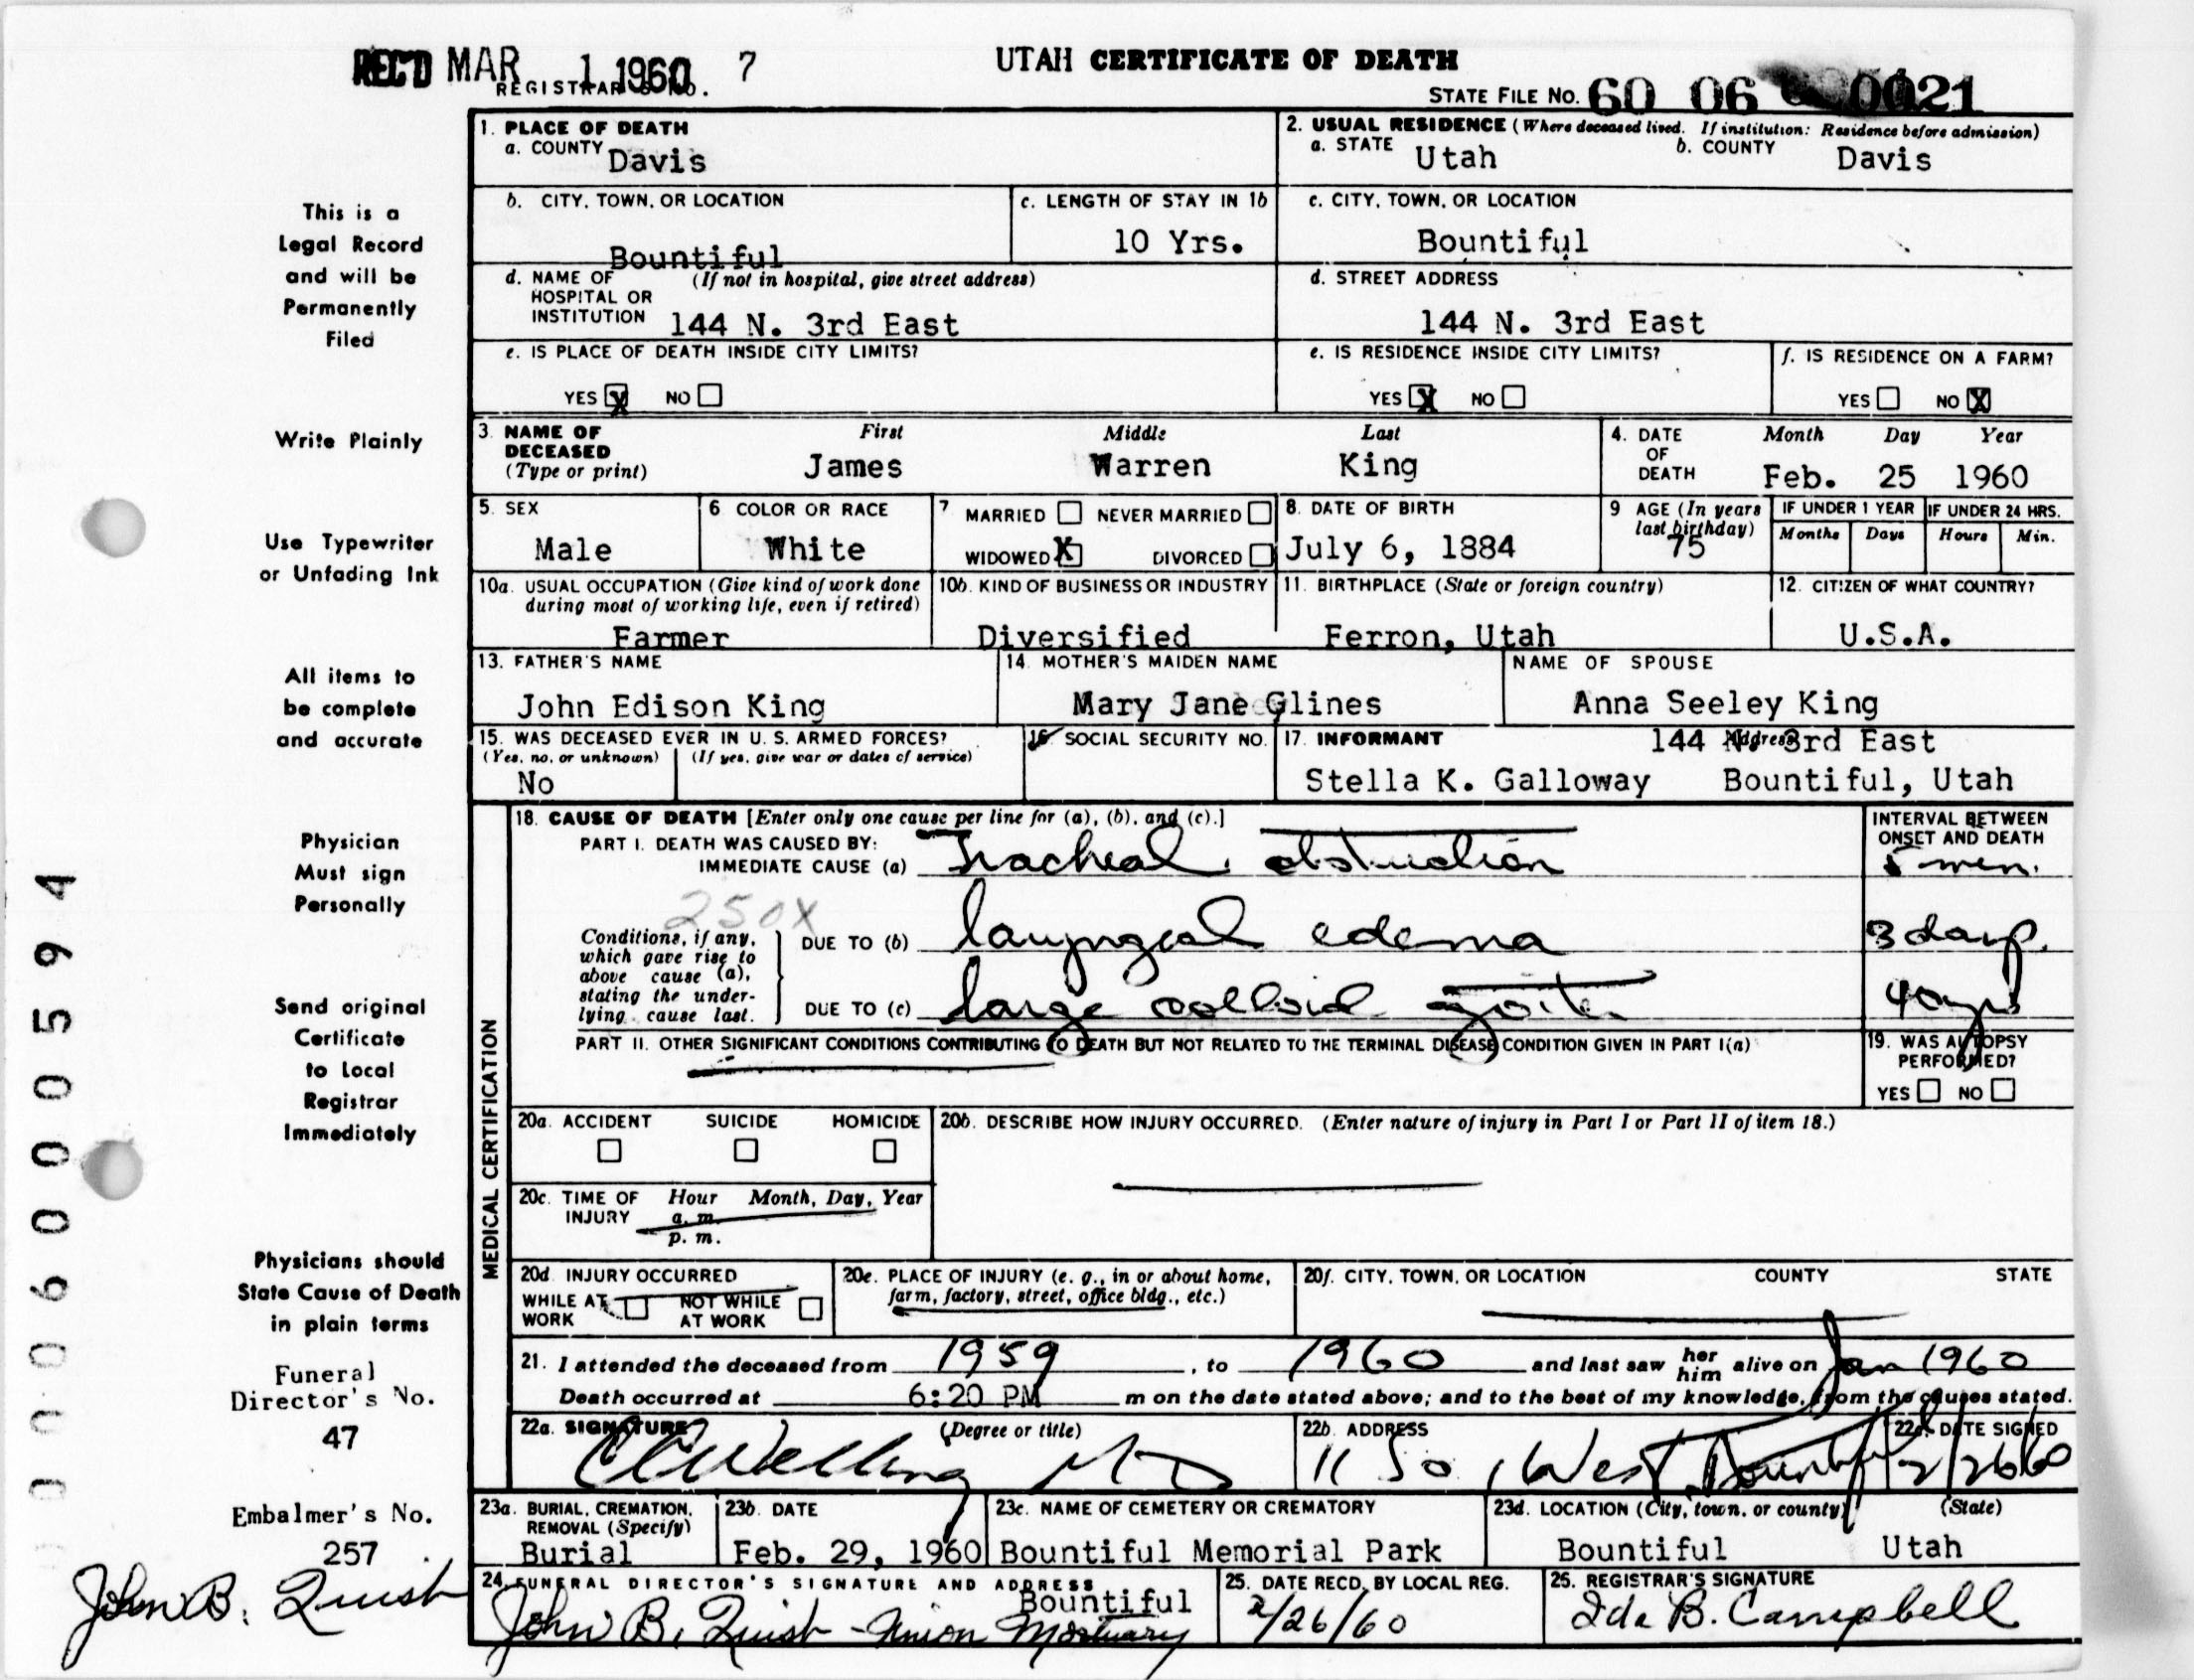 REC'D MAR 1 1960
REGISTRAR'S NO. 7
UTAH CERTIFICATE OF DEATH
STATE FILE NO. 60 06 0021
1. PLACE OF DEATH
a. COUNTY Davis
2. USUAL RESIDENCE (Where deceased lived. If institution: Residence before admission)
a. STATE Utah b. COUNTY Davis
b. CITY, TOWN, OR LOCATION Bountiful
c. LENGTH OF STAY IN 1b 10 Yrs.
c. CITY, TOWN, OR LOCATION Bountiful
d. NAME OF HOSPITAL OR INSTITUTION (If not in hospital, give street address) 144 N. 3rd East
d. STREET ADDRESS 144 N. 3rd East
e. IS PLACE OF DEATH INSIDE CITY LIMITS?
YES X NO
e. IS RESIDENCE INSIDE CITY LIMITS?
YES X NO
f. IS RESIDENCE ON A FARM?
YES NO X
3. NAME OF DECEASED (Type or print)
First Middle Last
James Warren King
4. DATE OF DEATH
Month Day Year
Feb. 25 1960
5. SEX Male
6 COLOR OR RACE White
7 MARRIED NEVER MARRIED
WIDOWED X DIVORCED
8. DATE OF BIRTH July 6, 1884
9 AGE (In years last birthday) 75
IF UNDER 1 YEAR
Months Days
IF UNDER 24 HRS.
Hours Min.
10a. USUAL OCCUPATION (Give kind of work done during most of working life, even if retired)
Farmer
10b. KIND OF BUSINESS OR INDUSTRY
Diversified
11. BIRTHPLACE (State or foreign country)
Ferron, Utah
12. CITIZEN OF WHAT COUNTRY?
U.S.A.
13. FATHER'S NAME
John Edison King
14. MOTHER'S MAIDEN NAME
Mary Jane Glines
NAME OF SPOUSE
Anna Seeley King
15. WAS DECEASED EVER IN U. S. ARMED FORCES?
(Yes, no, or unknown) (If yes, give war or dates of service)
No
16. SOCIAL SECURITY NO.
17. INFORMANT Address
144 N. 3rd East
Stella K. Galloway Bountiful, Utah
MEDICAL CERTIFICATION
18. CAUSE OF DEATH [Enter only one cause per line for (a), (b), and (c).]
INTERVAL BETWEEN ONSET AND DEATH
PART I. DEATH WAS CAUSED BY:
IMMEDIATE CAUSE (a) Tracheal obstruction 5 min.
250X
Conditions, if any, which gave rise to above cause (a), stating the underlying cause last.
DUE TO (b) laryngeal edema 3 days.
DUE TO (c) large colloid goiter 40 yrs
PART II. OTHER SIGNIFICANT CONDITIONS CONTRIBUTING TO DEATH BUT NOT RELATED TO THE TERMINAL DISEASE CONDITION GIVEN IN PART I(a)
19. WAS AUTOPSY PERFORMED?
YES NO
20a. ACCIDENT SUICIDE HOMICIDE
20b. DESCRIBE HOW INJURY OCCURRED. (Enter nature of injury in Part I or Part II of item 18.)
20c. TIME OF INJURY Hour Month, Day, Year
a. m.
p. m.
20d. INJURY OCCURRED
WHILE AT WORK NOT WHILE AT WORK
20e. PLACE OF INJURY (e. g., in or about home, farm, factory, street, office bldg., etc.)
20f. CITY, TOWN, OR LOCATION COUNTY STATE
21. I attended the deceased from 1959, to 1960 and last saw her him alive on Jan 1960
Death occurred at 6:20 PM m on the date stated above; and to the best of my knowledge, from the causes stated.
22a. SIGNATURE (Degree or title)
Welling MD
22b. ADDRESS
11 So, West Bountiful
22c. DATE SIGNED
2/26/60
23a. BURIAL, CREMATION, REMOVAL (Specify)
Burial
23b. DATE
Feb. 29, 1960
23c. NAME OF CEMETERY OR CREMATORY
Bountiful Memorial Park
23d. LOCATION (City, town, or county) (State)
Bountiful Utah
24. FUNERAL DIRECTOR'S SIGNATURE AND ADDRESS
Bountiful
John B. - Union Mortuary
25. DATE RECD. BY LOCAL REG.
2/26/60
25. REGISTRAR'S SIGNATURE
Ida B. Campbell
This is a
Legal Record
and will be
Permanently
Filed
Write Plainly
Use Typewriter
or Unfading Ink
All items to
be complete
and accurate
Physician
Must sign
Personally
Send original
Certificate
to Local
Registrar
Immediately
Physicians should
State Cause of Death
in plain terms
Funeral
Director's No.
47
Embalmer's No.
257
John B.
006000594